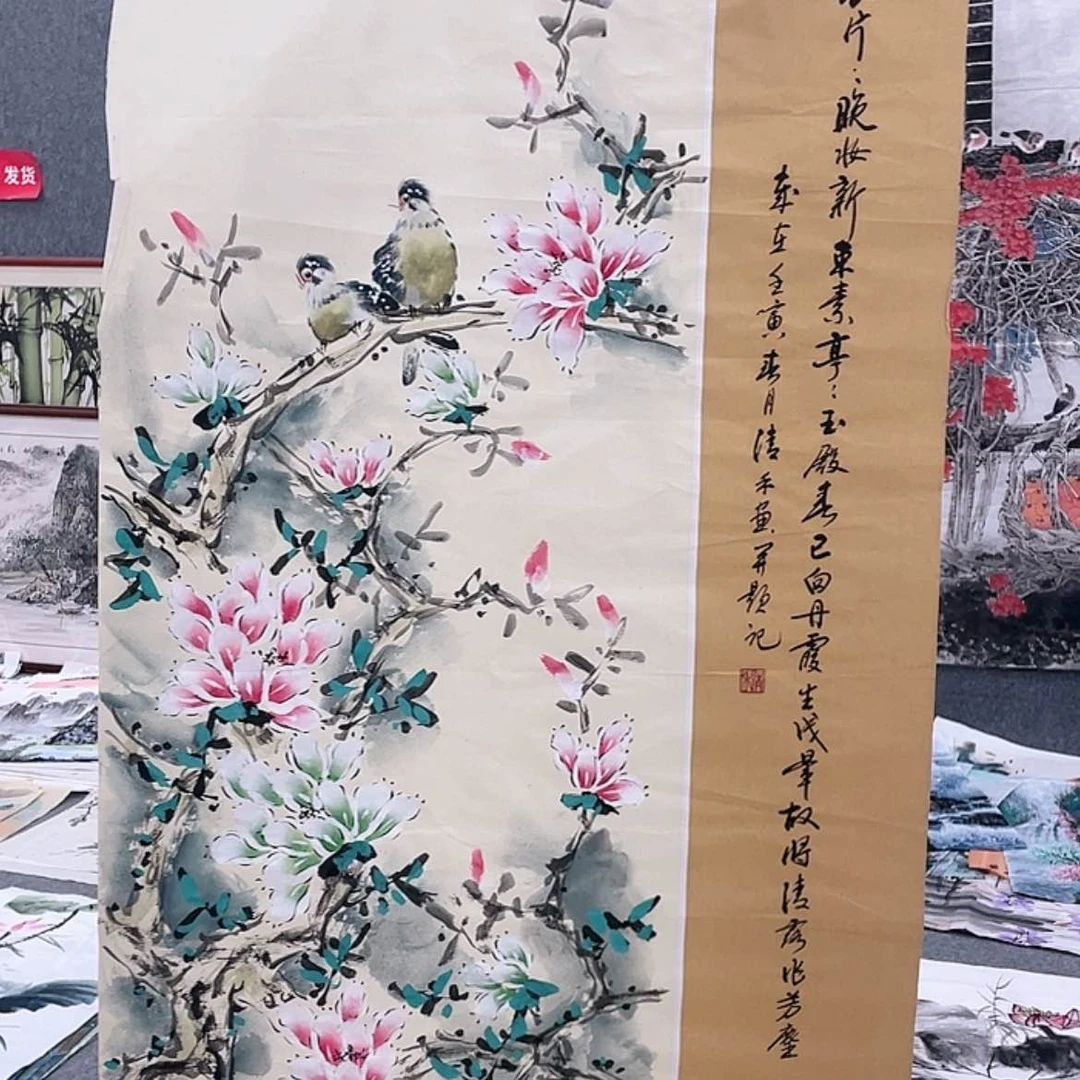 片々晚妆新束素亭々玉殿春已向丹霞生浅晕故将清露作芳尘
岁在壬寅春月清禾画并题记
发货